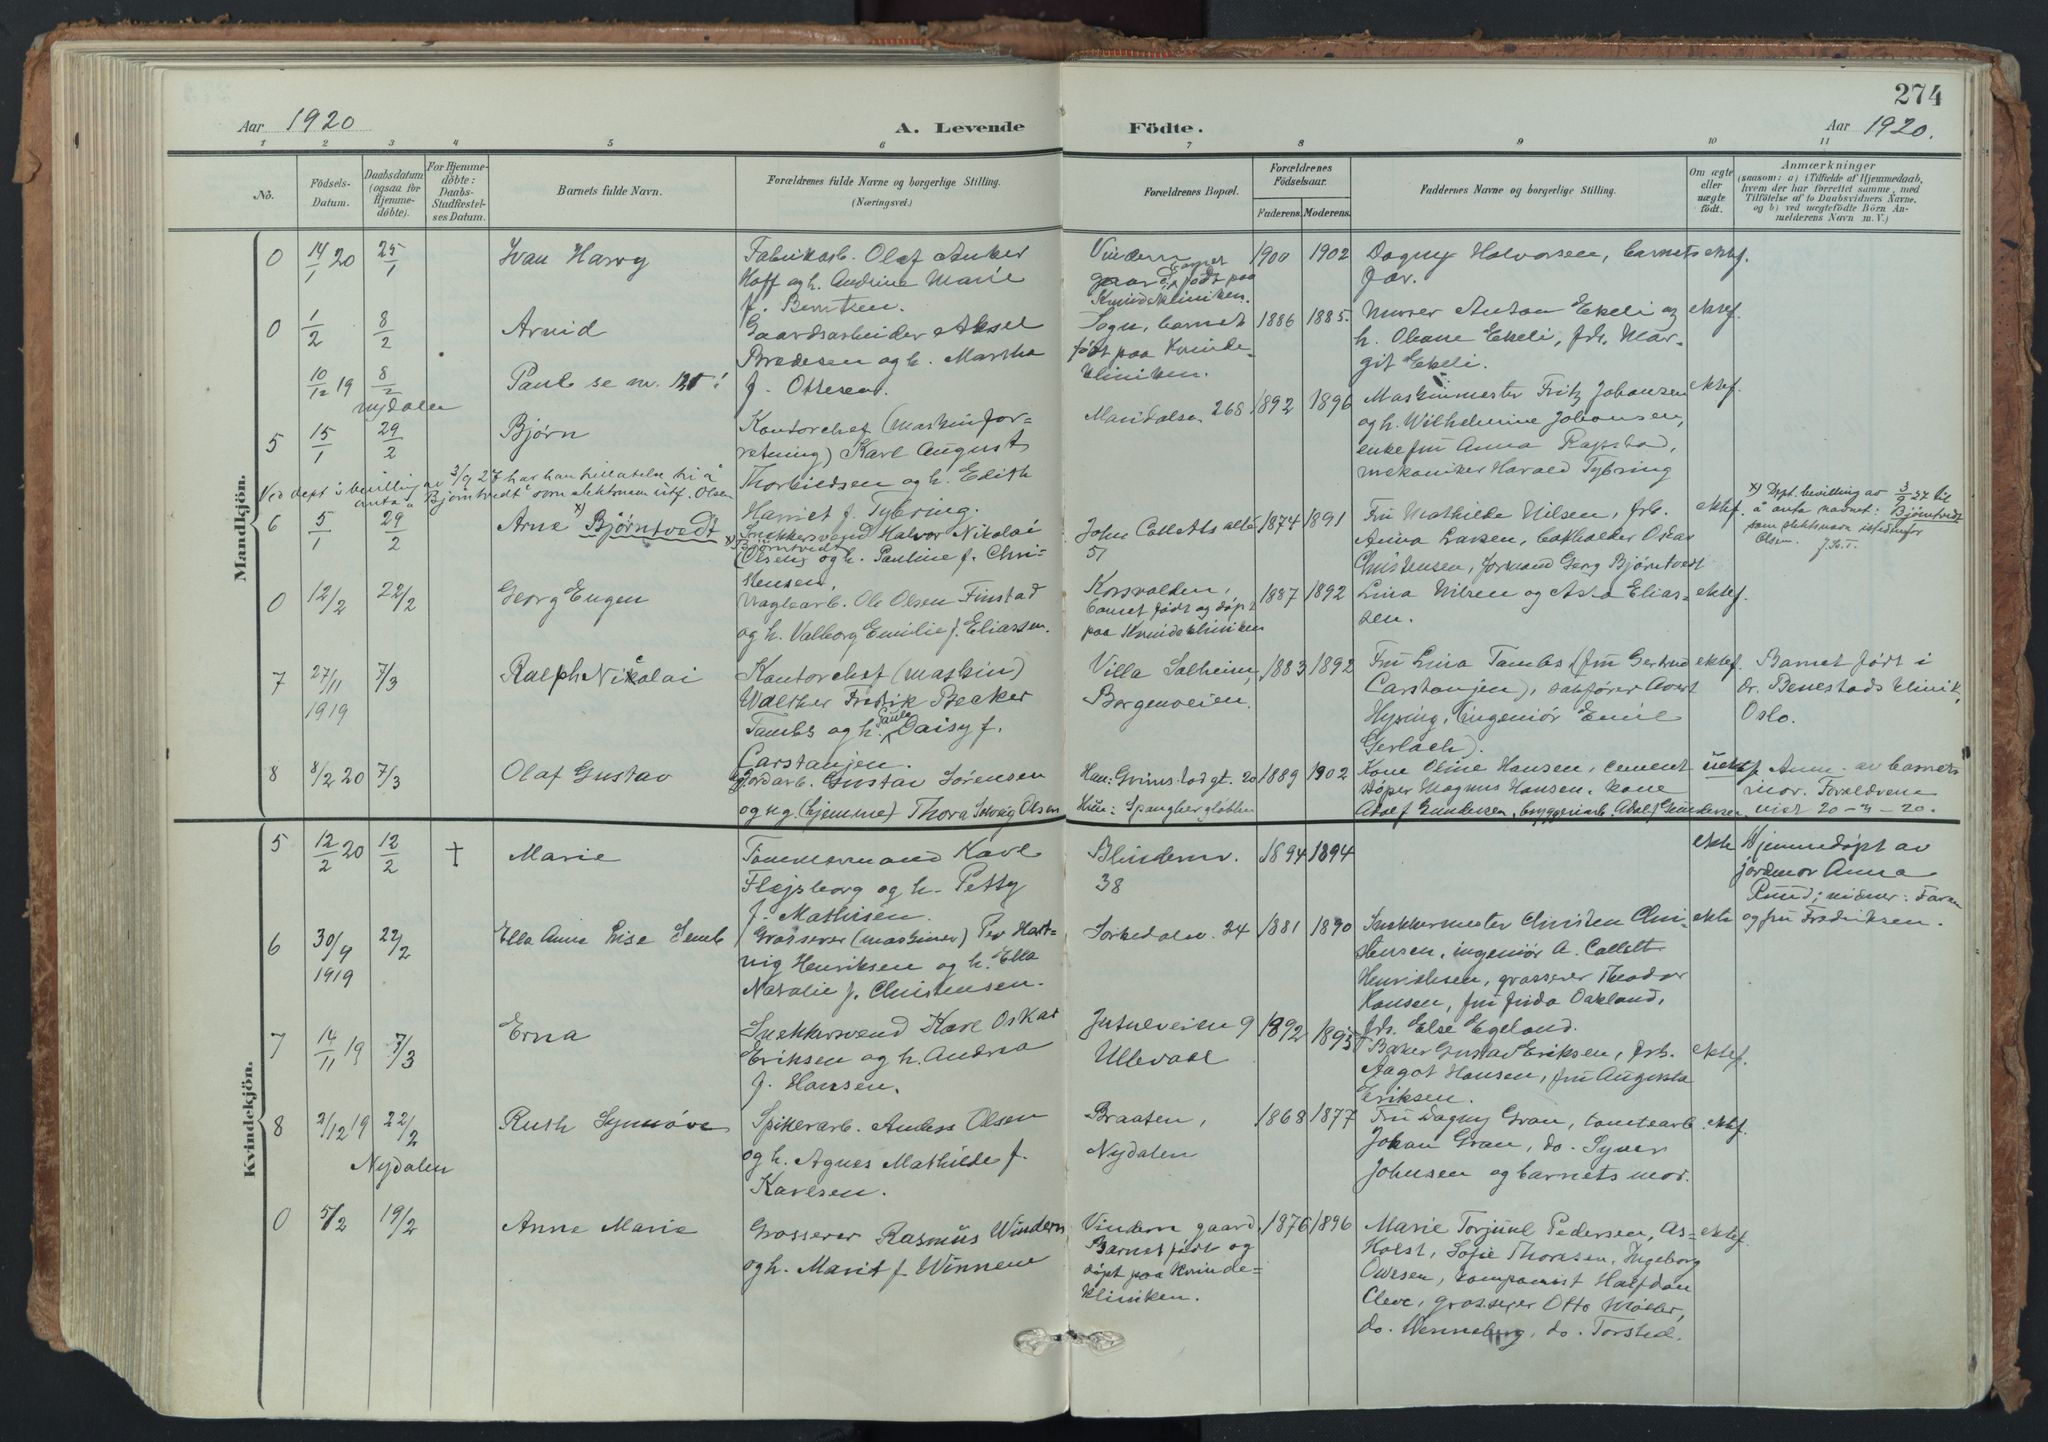 274
Aar 1920
A. Levende Födte.
Aar 1920.
1 2 3 4 5 6 7 8 9 10 11
No.
Födsels-Datum.
Daabsdatum (ogsaa for Hjemme-döbte).
For Hjemme-döbte: Daabs-Stadfæstel-ses Datum.
Barnets fulde Navn.
Forældrenes fulde Navne og borgerlige Stilling.
(Næringsvei.)
Forældrenes Bopæl.
Forældrenes Födselsaar.
Faderens. Moderens.
Faddernes Navne og borgerlige Stilling.
Om ægte eller uægte födt.
Anmærkninger
(saasom: a) i Tilfælde af Hjemmedaab, hvem der har forrettet samme, med Tilföielse af to Daabsvidners Navne, og b) ved uægtefödte Börn An-melderens Navn m. V.)
Mandkjön.
0 14/1 20 25/1 Ivan Harry
Fabrikarb. Olaf Anker
Hoff og h. Andrine Marie
f. Berntsen.
Vindern
gaard, barnet født paa
Kvindekliniken.
1900 1902
Dagny Halvorsen, barnets
far.
ektef.
0 1/2 8/2 Arvid
Gaardsarbeider Aksel
Bredesen og h. Martha
f. Ottesen.
Sogn, barnet
født paa Kvinde-
kliniken.
1886 1885.
Murer Anton Ekeli og
h. Oleane Ekeli, frk. Mar-
git Ekeli.
ektef.
10/12 19 8/2 Paul se nr. 125!
Nydalen
5 15/1 29/2 Bjørn
Kontorchef (maskinfor-
retning) Karl August
Thorkildsen og h. Edith
Harriet f. Tybring.
Maridalsv. 268
1892 1896
Maskinmester Fritz Johansen
og h. Wilhelmine Johansen,
enkefru Anna Rapstad,
mekaniker Harald Tybring
ektef.
Ved dept's bevilling av 3/9 27 har han tillatelse til å
anta Bjørntvedt som slektsnavn istf. Olsen
6 5/1 29/2 Arne x) Bjørntvedt
Snekkersvend Halvor Nikolai
x) Bjørntvedt
(Olsen) og h. Pauline f. Chri-
stensen.
John Colletts allé
51
1874 1891
Fru Mathilde Nilsen, frk.
Anna Larsen, bokholder Oskar
Christensen, formand Georg Bjørntvedt
ektef.
x) Dept. bevilling av 3/9 27 til
å anta navnet: Bjørntvedt
som slektsnavn istedenfor
Olsen.
0 12/2 22/2 Georg Eugen
Naglearb. Ole Olsen Finstad
og h. Valborg Emilie f. Eliassen.
Korsvolden,
barnet født og døpt
paa Kvindekliniken
1887 1892
Lina Nilsen og Asta Elias-
sen.
ektef.
7 27/11 1919 7/3 Ralph Nikolai
Kontorchef (maskin)
Walther Fredrik Becker
Tambs og h. Paula Daisy f.
Carstanjen.
Villa Solheim,
Borgenveien.
1883 1892
Fru Lina Tambs (fru Gertrud
Carstanjen), sakfører Avert
Hysing, (ingeniør Emil
Gerlach).
ektef.
Barnet født i
dr. Benestads klinik,
Oslo.
8 8/2 20 7/3 Olaf Gustav
Jordarb. Gustav Sørensen
og ug. (hjemme) Thora Solveig Olsen
Han: Grimstadgt. 20
Hun: Spangbergløkken
1889 1902
Kone Oline Hansen, cement-
støper Magnus Hansen, kone
Adolf Gundersen, bryggeriarb. Adolf Gundersen.
uektef.
Anm. av barnets
mor. Forældrene
viet 20-3-20.
Kvindekjön.
5 12/2 20 12/2 † Marie
Tømmermand Karl
Flejsborg og h. Petty
f. Mathisen.
Blindernv.
38
1894 1894
ekte
Hjemmedøpt av
jordmor Anna
Ruud; vidner: Faren
og fru Fredriksen.
6 30/9 1919 22/2 Ella Anne Lise Semb
Grosserer (maskiner) Per Hart-
vig Henriksen og h. Ella
Natalie f. Christensen.
Sørkedalsv. 24
1881 1890
Snekkermester Christen Chri-
stensen, ingeniør A. Collett
Henriksen, grosserer Theodor
Hansen, fru Frida Oakland,
frk. Else Egeland.
ekte
7 14/11 19 7/3 Erna
Snekkersvend Karl Oskar
Eriksen og h. Andrea
f. Hansen.
Jutulveien 9
Ullevaal
1892 1895
Baker Gustav Eriksen, frk.
Aagot Hansen, fru Augusta
Eriksen.
ektef.
8 2/12 19 22/2 Ruth Synnøve
Nydalen
Spikerarb. Anders Olsen
og h. Agnes Mathilde f.
Karlsen.
Braaten,
Nydalen
1868 1877
Fru Dagny Gran, tomtearb.
Johan Gran, do. Syver
Johnsen og barnets mor.
ektef.
0 5/2 19/2 Anne Marie
Grosserer Rasmus Windern
og h. Marit f. Winnene
Vindern gaard
Barnet født og
døpt paa Kvinde-
kliniken.
1876 1896
Marie Torjuul Pedersen, As-
Holst, Sofie Thoresen, Ingeborg
Owesen, komponist Halfdan
Cleve, grosserer Otto Møller,
do. Wenneberg, do. Torsted.
ektef.